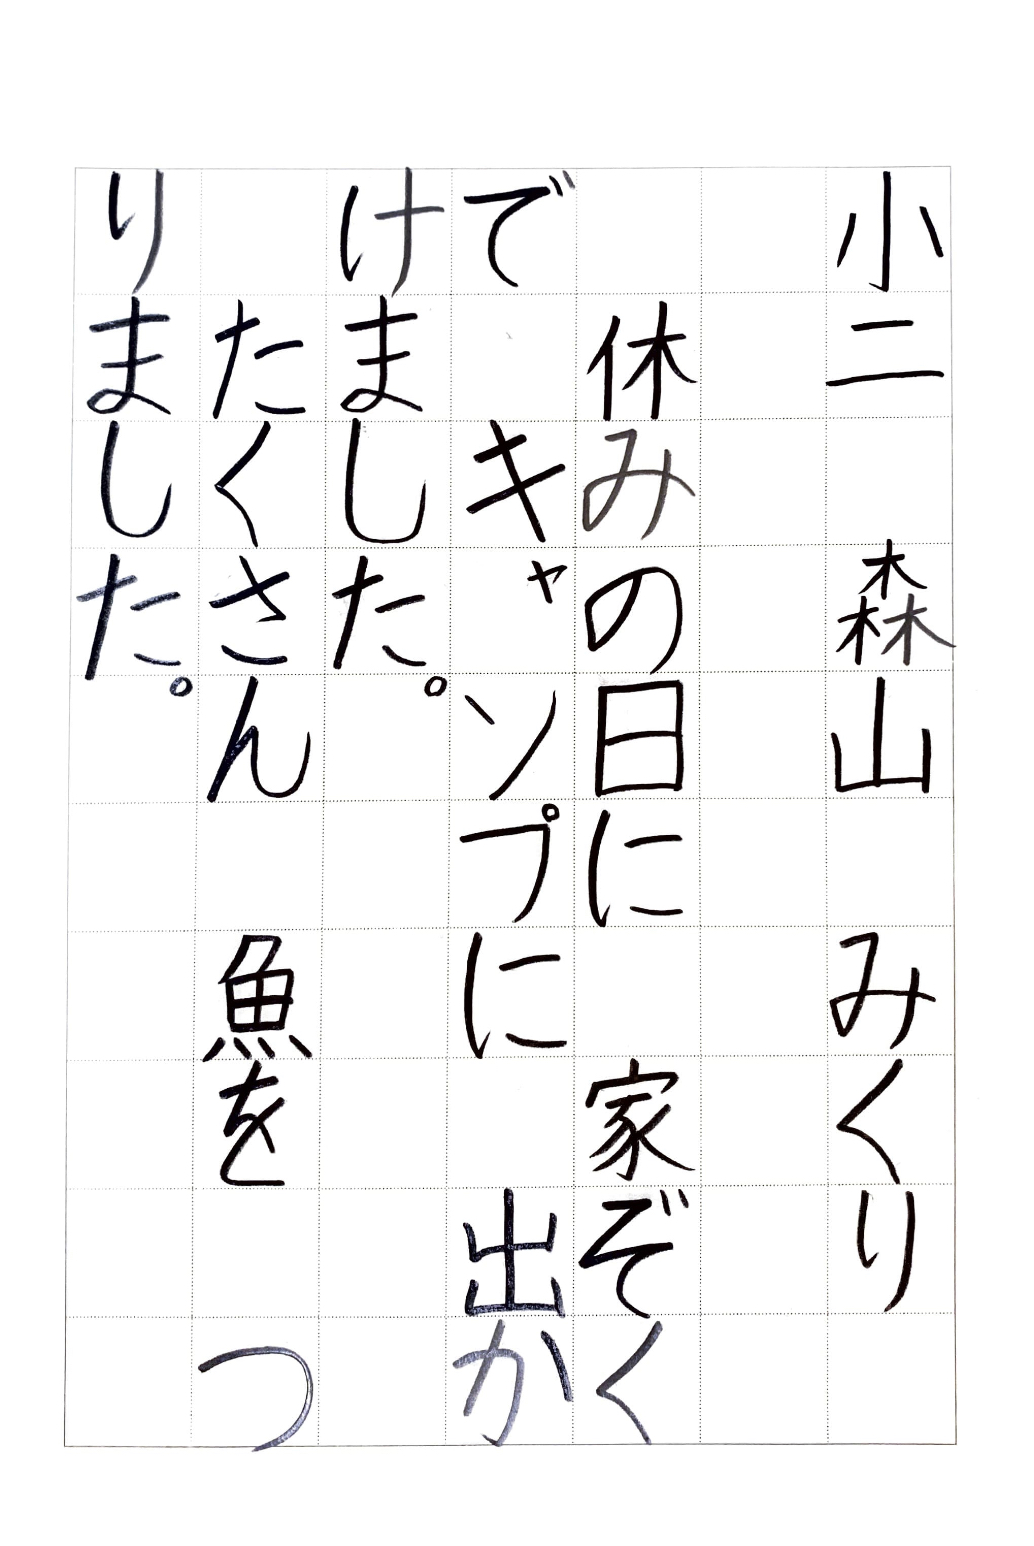 小二　森山　みくり
休みの日に　家ぞく
で　キャンプに　出か
けました。
たくさん　魚を　つ
りました。